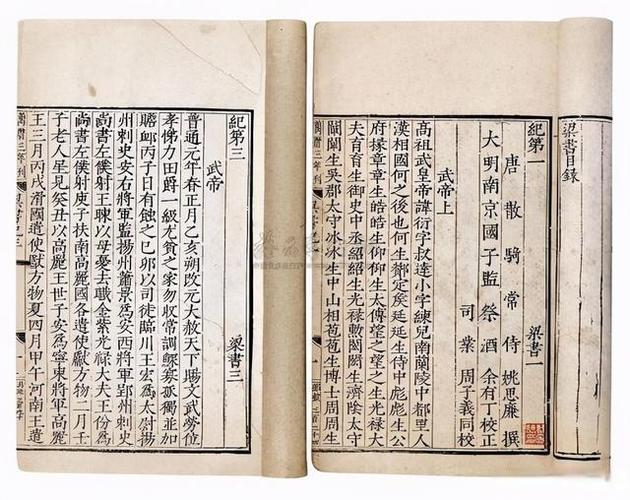 梁書目録
紀第一 梁書一
唐散騎常侍姚思廉撰
大明南京國子監祭酒余有丁校正
司業周子義同校
武帝上
高祖武皇帝諱衍字叔達小字練兒南蘭陵中都里人
漢相國何之後也何生酇定侯延延生侍中彪彪生公
府掾章章生皓皓生仰仰生太傅望之望之生光禄大
夫育育生御史中丞紹紹生光禄勳閎閎生濟陰太守
闡闡生吳郡太守冰冰生中山相苞苞生博士周周生
萬曆三年刊
紀第三 梁書三
武帝
普通元年春正月乙亥朔改元大赦天下賜文武勞位
孝悌力田爵一級尤貧之家勿收常調鰥寡孤獨並加
贍卹丙子日有蝕之己卯以司徒臨川王宏為太尉揚
州刺史安右將軍監揚州蕭景為安西將軍郢州刺史
尚書左僕射王暕以母憂去職金紫光禄大夫王份為
尚書左僕射庚子扶南高麗國各遣使獻方物二月壬
子老人星見癸丑以高麗王世子安為寧東將軍高麗
王三月丙戌滑國遣使獻方物夏四月甲午河南王遣
萬曆三年刊